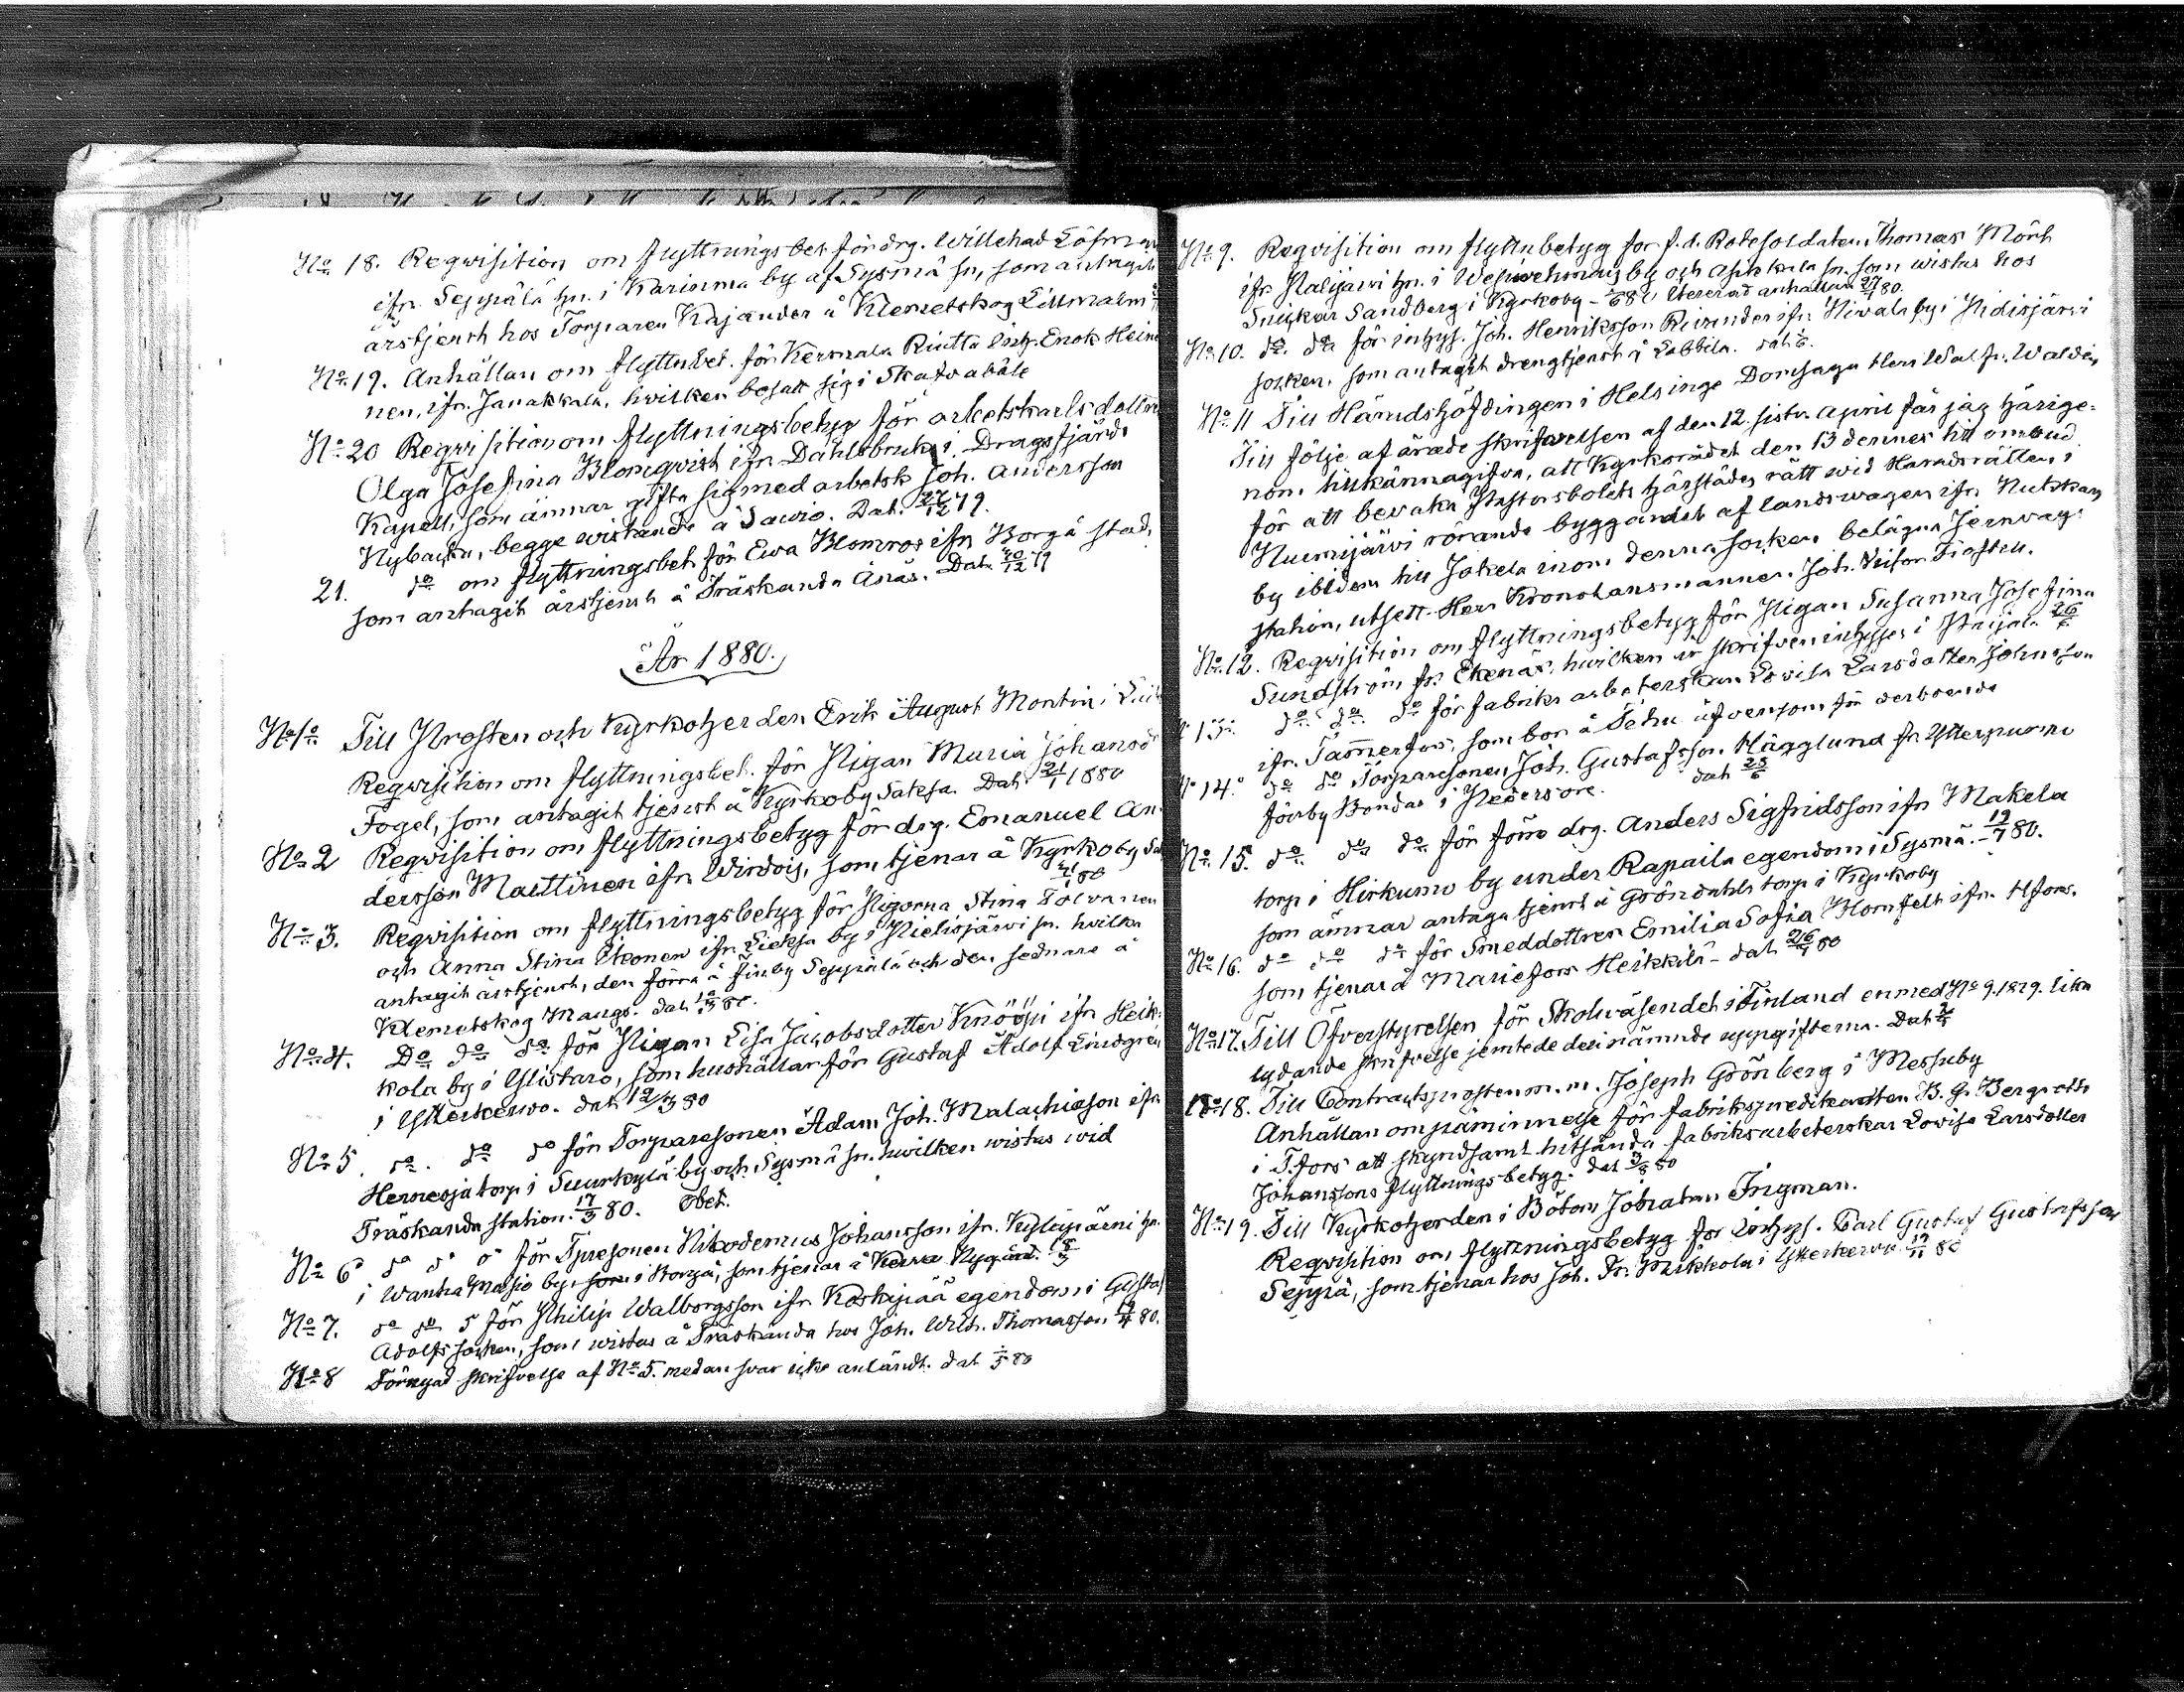 No 18. Reqvisition om flyttningsbet. för drg. Willehad Löfman
ifr. Seppälä hn. i Karinma by af Sysmä sn, som antagit
årstjenst hos Torparen Kajander å Klemetskog Lillmalm
No 19. Anhållan om flyttn.bet. för Kersmala Rintta inh. Enok Heino
nen, ifr. Janakkala, hvilken besatt sig i Skafvabäle
No 20 Reqvisition om flyttningsbetyg för arbetskarlsdottren
Olga Josefina Blomqvist ifr Dahlsbruk i Dragsfjärds
Kapell, som ämnar gifta sig med arbetsk Joh. Andersson
Nybacka, begge wistande å Sawio. Dat. 27/12 79.
21. do om flyttningsbet för Ewa Blomros ifr Borgå stad,
som antagit årstjenst å Träskända Ånäs. Dat. 30/12 79
År 1880.
No 1o Till Prosten och Kyrkoherden Erik August Montin i
Reqvisition om flyttningsbet. för Pigan Maria Johansdr
Fogel, som antagit tjenst å Kyrkoby Saksa. Dat. 21/1 1880
No 2 Reqvisition om flyttningsbetyg för drg. Emanuel An-
dersson Marttinen ifr Wirdois, som tjenar å Kyrkoby
21/1 80
No 3. Reqvisition om flyttningsbetyg för Pigorna Stina Tolvanen
och Anna Stina Ekonen ifr. Lieksa by i Pielisjärwi sn. hvilka
antagit årstjenst, den förra å Finby Seppälä och den sednare å
Klemetskog Mangs. dat 10/3 80.
No 4. Do do do för Pigan Lisa Jacobsdotter Knööpi ifr Heik-
kola by i Ylistaro, som hushållar för Gustaf Adolf Lindgrén
i Ytterkerwo. dat 12/3 80
No 5. do. do do för Torparesonen Adam Joh. Malachiasson ifr
Hernesja torp i Suurkylä by och Sysmä sn. hwilken wistas wid
Träskända station. 17/3 80. Obet.
No 6o do do o för Tjuresonen Nikodemus Johansson ifr. Kylänpäeni hn.
i Wanha Moisio by, i Borgå, som tjenar å Kerwo Nygård.
No 7. do do do för Philip Walborgsson ifr Koskipää egendom i Gustaf
Adolfs socken, som wistas å Träskända hos Joh. Wilh. Thomasson 19/4 80.
No 8 Förnyad skrifvelse af No 5. medan svar icke anländt. dat 1/5 80
No 9. Reqvisition om flyttnbetyg för f. d. Rotesoldaten Thomas Mörk
ifr. Palijärwi hn. i by och Asikkala sn. som wistas hos
Snickar Sandberg i Kyrkoby - 1/6 80 Itererad anhållan 27/7 80.
No 10. do. do för inhys. Joh. Henriksson ifr Niwala by i Pidisjärwi
socken, som antagit drengtjenst å Labbila. dat.
No 11 Till Häradshöfdingen i Helsinge Domsaga Herr Walfr. Waldén
Till följe af ärade skrifvelsen af den 12. sistv. April får jag härige-
nom tillkännagifva, att Kyrkorådet den 13 dennes till ombud
för att bevaka Pastorsbolets härstädes rätt wid Häradsrätten i
Nurmijärvi rörande byggandet af landswägen ifr Nukkari
by ibidem till Jokela inom denna socken belägna Jernvägs-
station, utsett Herr Kronolänsmannen. Joh. Viktor Fiasten.
No 12. Reqvisition om flyttningsbetyg för Pigan Susanna Josefina
Sundström fr. Ekenäs, hwilken är skrifven inhyses i Paijala 26/
o 13. do do do för fabriks arbeterskan Lovisa Larsdotter Johansson
ifr. Tammerfors, som bor å Tehu äfvensom för derboende
No 14. do do Torparesonen Joh. Gustafsson Hägglund fr Ytterpurmo
förby Bondas i Pedersöre. dat 25/6
No 15. do do do för förre drg. Anders Sigfridsson ifr Makela
torp i Hirkumo by under Rapaila egendom i Sysmä. 19/7 80.
som ämnar antaga tjenst å Gröndahls torp i Kyrkoby
No 16. do do do för Smeddottren Emilia Sofia Blomfelt ifr. Hfors.
som tjenar å Mariefors Heikkilä - dat 26/7 80
No 17. Till Öfverstyrelsen för Skolväsendet i Finland en med No 9. 1879. lika
lydande skrifvelse jemte de deri nämnde uppgifterna. Dat
No 18. Till Contractsprosten m. m. Joseph Grönberg i Messuby
Anhållan om påminnelse för fabrikspredikanten B. G. Bergroth
i T.fors att skyndsamt hitsända fabriksarbeterskan Lowisa Larsdotter
Johanssons flyttningsbetyg. dat 3/8 80
No 19. Till Kyrkoherden i Bötom Johatan Ingman.
Reqvisition om flyttningsbetyg för Inhys. Carl Gustaf Gustafsson
Seppä, som tjenar hos Joh. Fr. Mikkola i Ytterkerwo. 19/11 80